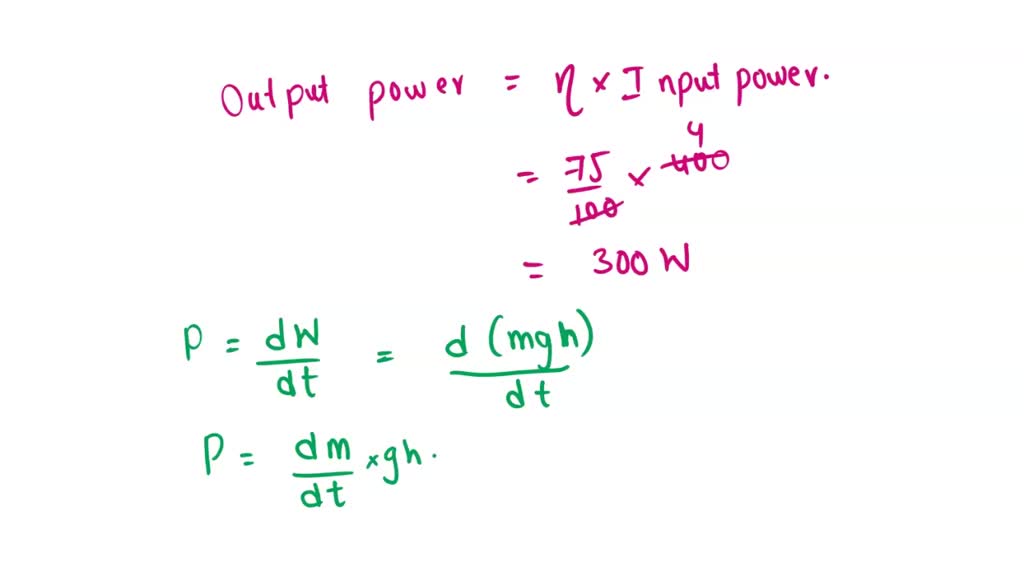 Output power = η × Input power.
4
= 75/100 × 400
= 300 W
P = dW/dt = d (mgh)/dt
P = dm/dt × gh.